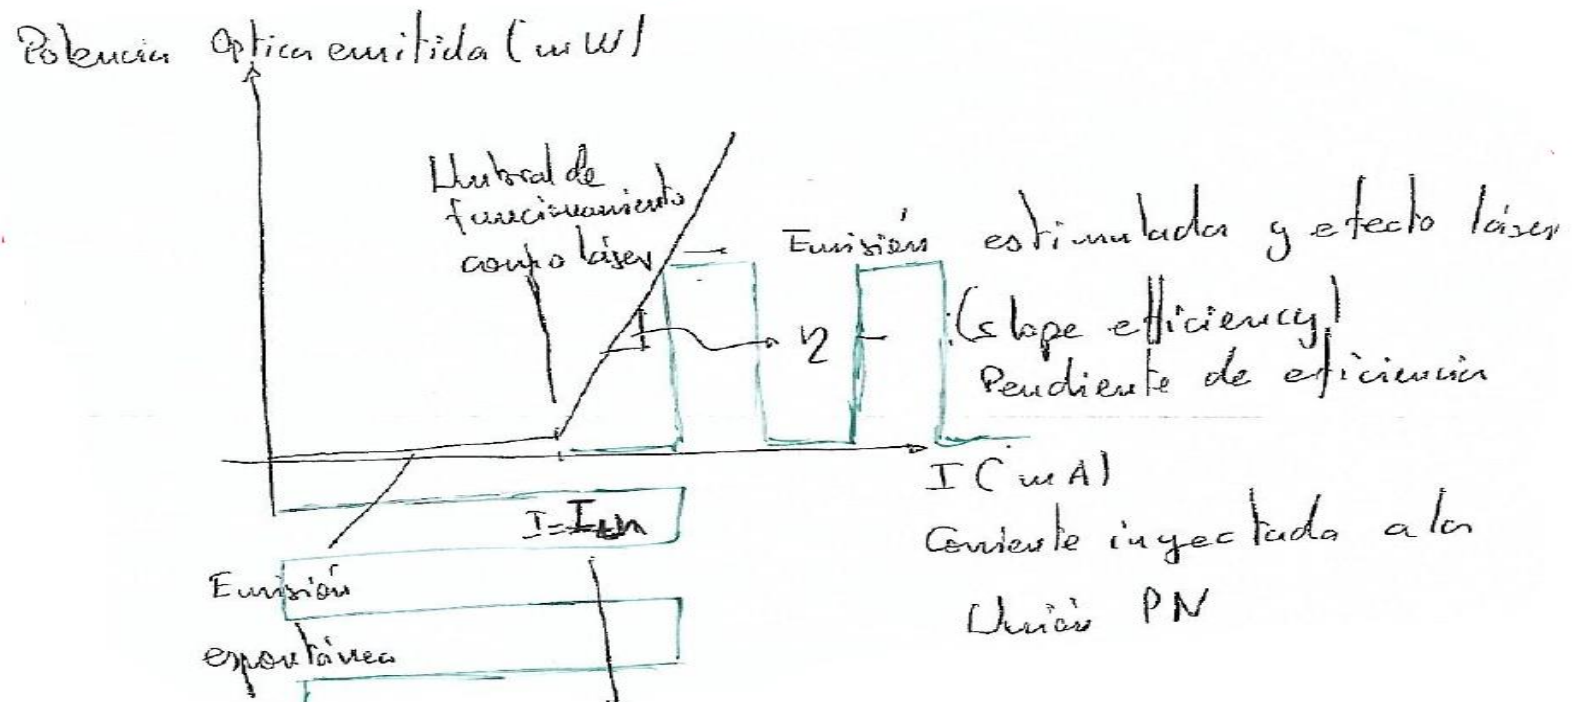 Potencia Optica emitida (mW)
Umbral de
funcionamiento
como láser
Emisión estimulada y efecto láser
η
(slope efficiency)
Pendiente de eficiencia
I (mA)
I=Ith
Corriente inyectada a la
Unión PN
Emisión
espontánea